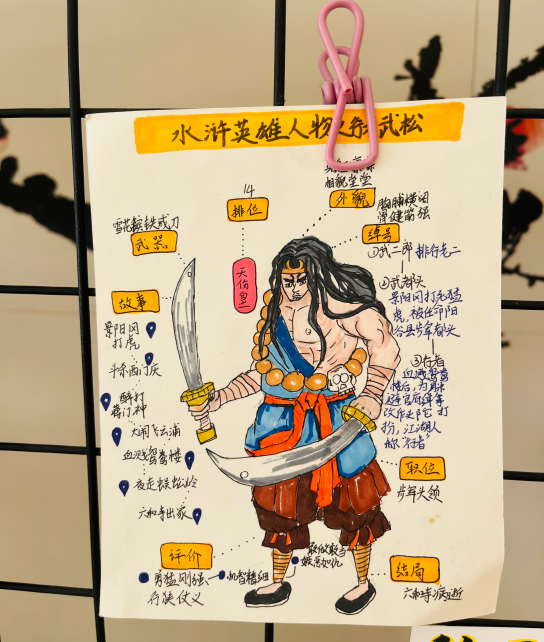 水浒英雄人物之武松
相貌堂堂
外貌
胸脯横阔
14
排位
天伤星
雪花镔铁戒刀
武器
绰号
①武二郎 排行老二
②武都头
景阳冈打死猛
虎,被任命阳
谷县步军都头
③行者
血溅鸳鸯
楼后,为
改作头陀打
扮,江湖人
称“行者”
故事
景阳冈
打虎
斗杀西门庆
醉打
蒋门神
大闹飞云浦
血溅鸳鸯楼
夜走蜈蚣岭
六和寺出家
职位
步军头领
评价
勇猛刚强
行侠仗义
机智精细
敢做敢当
嫉恶如仇
结局
六和寺